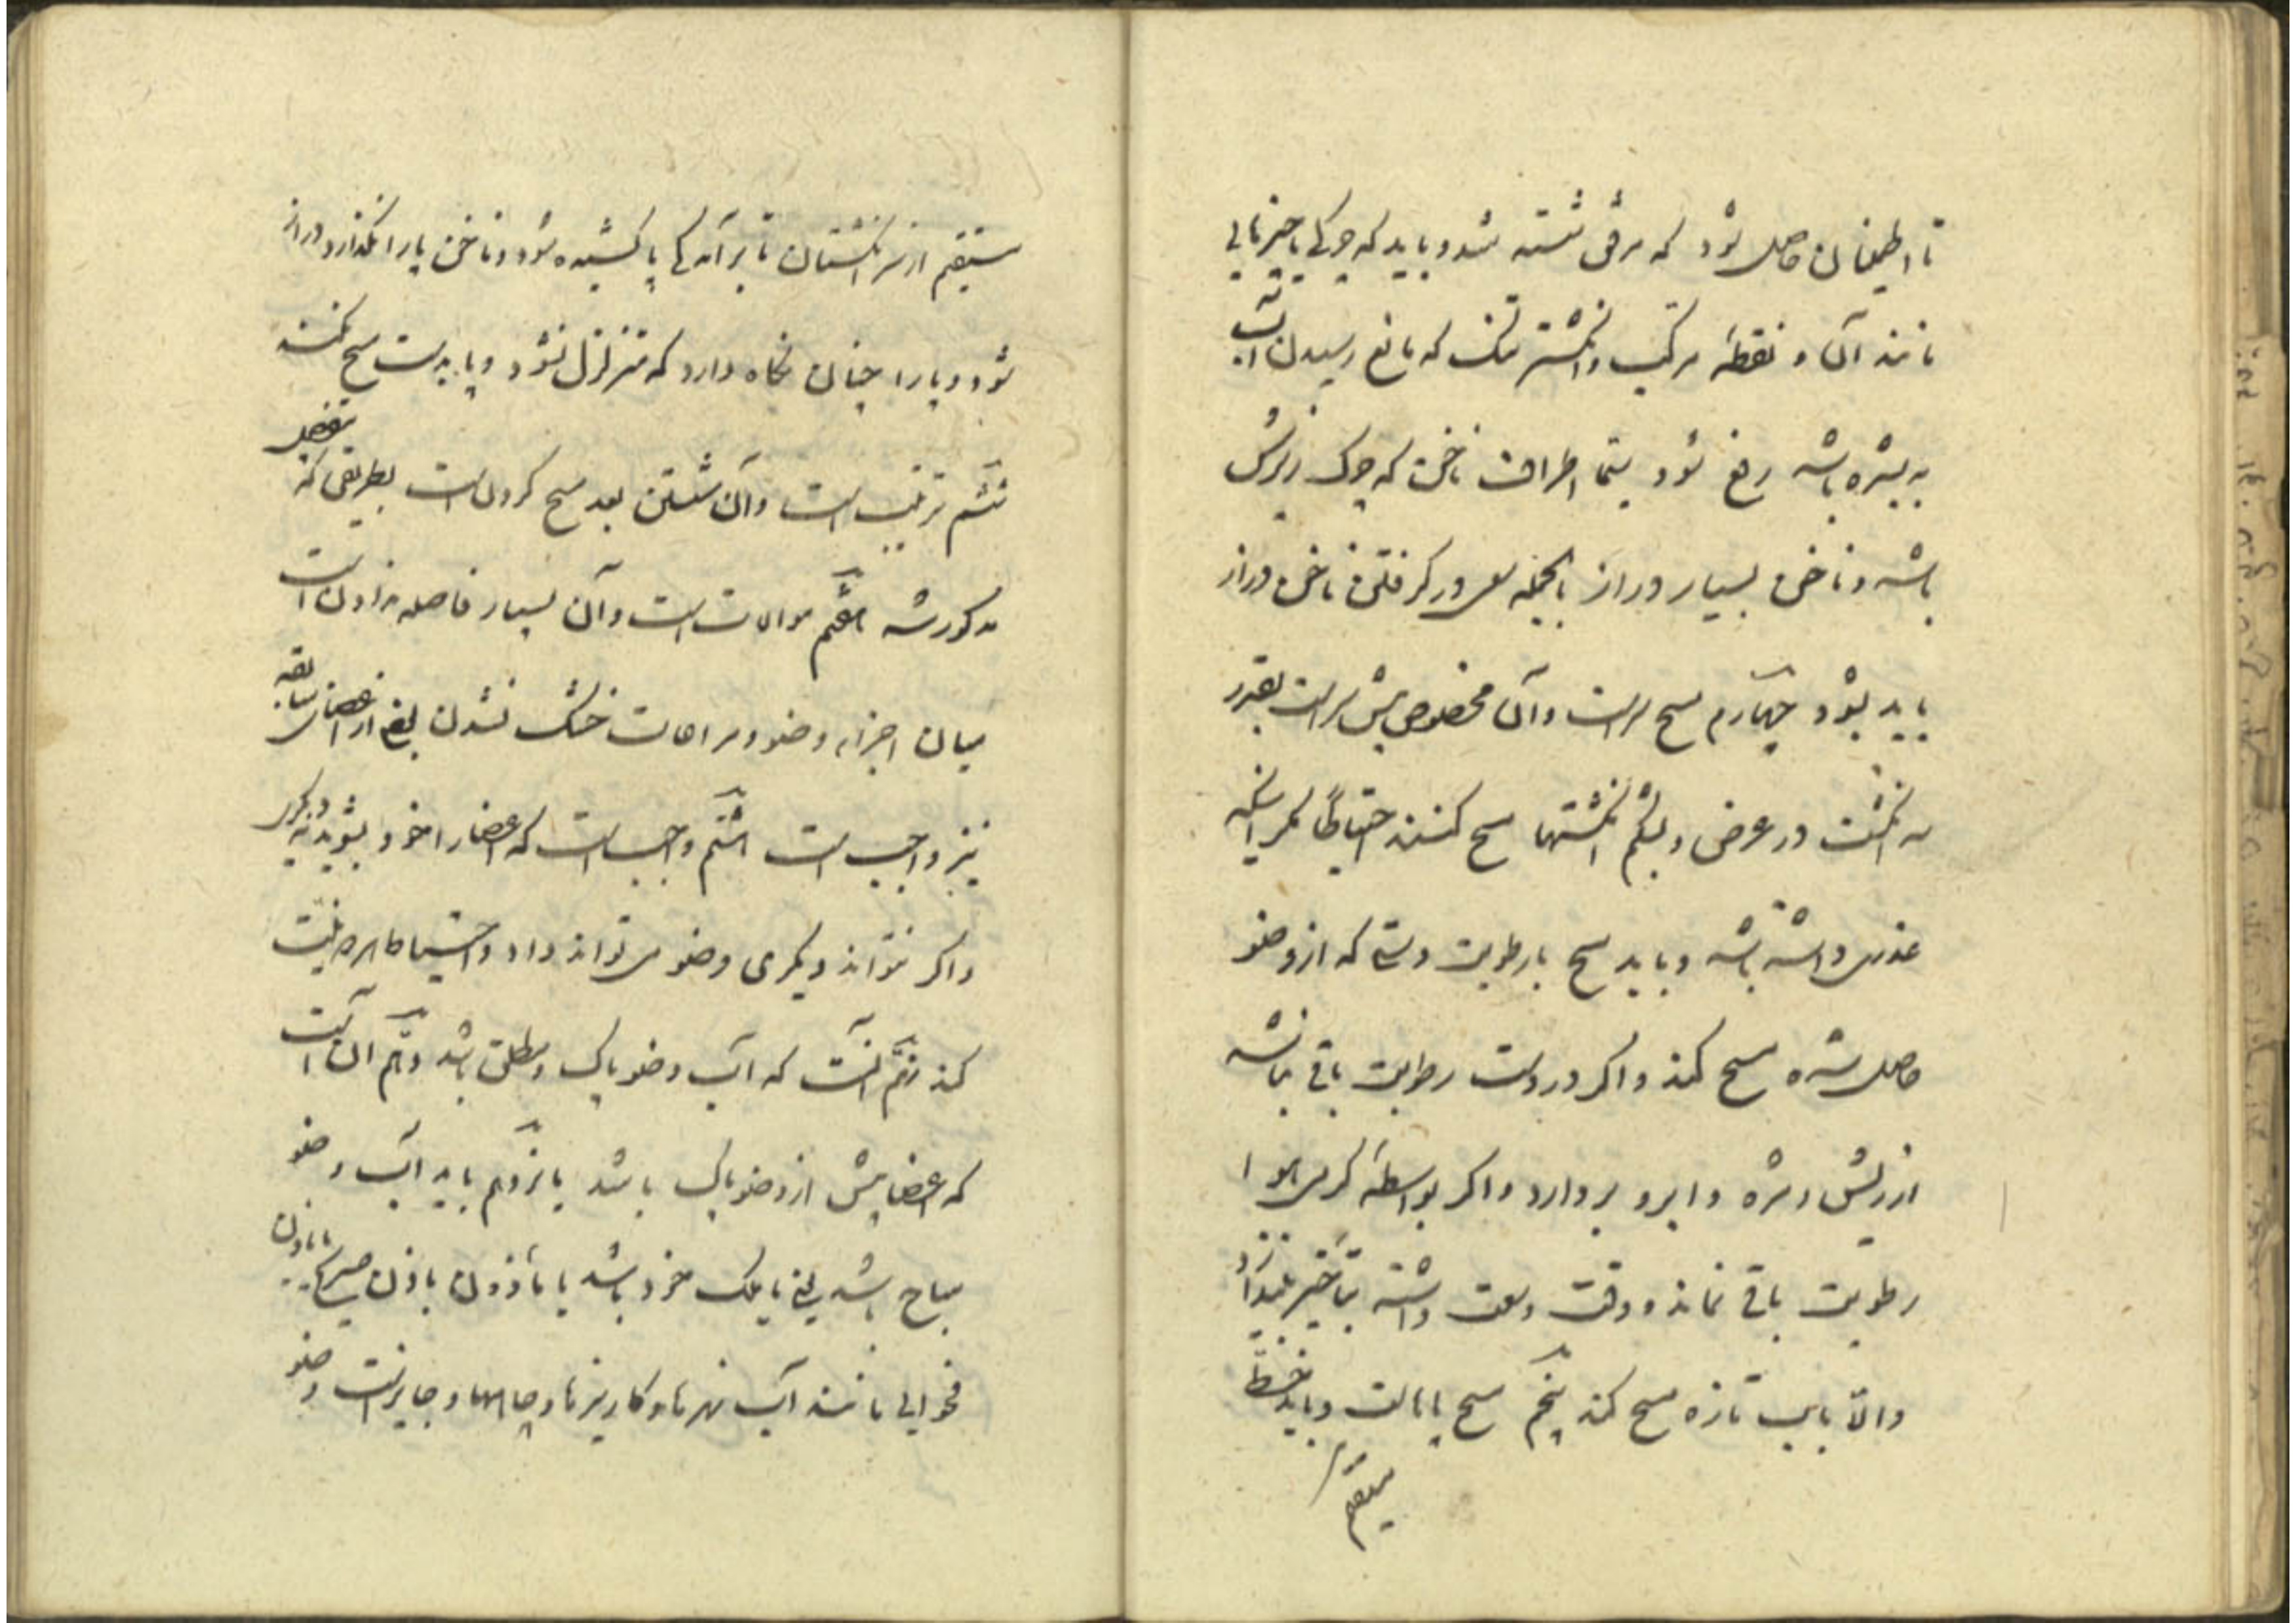 تا اطمینان حاصل شود که مرفق شسته شد و باید که چرکی یا چیزهایی
مانند آن و نقطه مرکب و انکشتر تنک که مانع رسیدن آب
به بشره باشد رفع شود سیما اطراف ناخن که چرک زیرش
باشد و ناخن بسیار دراز بالجمله سعی در کرفتن ناخن دراز
باید بشود چهارم مسح سر است و آن مخصوص پیش سر است بقدر
سه انکشت در عرض و بشکم انکشتها مسح کنند احتیاطا مکر آنکه
عذری داشته باشد و باید مسح با رطوبت دستی که از وضو
حاصل شده مسح کند و اکر در دست رطوبت باقی نباشد
از ریش و مژه و ابرو بردارد و اکر بواسطه کرمی هوا
رطوبت باقی نماند و وقت وسعت داشته بتأخیر بیندازد
والا بآب تازه مسح کند پنجم مسح پاهاست و باید بخط
مستقیم
مستقیم از سر انکشتان تا برآمدکی پا کشیده شود و ناخن پا را نکذارد دراز
شود و پا را چنان نکاه دارد که متزلزل نشود و پا بدست مسح نکند
ششم ترتیب است و آن شستن بعد مسح کردن است بطریقی که بتفصیل
مذکور شد هفتم موالات است و آن بسیار فاصله ندادن است
میان اجزاء وضو و مراعات خشک نشدن بعض از اعضای سابقه
نیز واجب است هشتم واجب است که اعضا را خود بشوید نه دیکری
و اکر نتواند دیکری وضو می تواند داد و احتیاطا هر دو نیت
کند نهم آنست که آب وضو پاک و مطلق باشد دهم آن است
که اعضا پیش از وضو پاک باشد یازدهم باید آب وضو
مباح باشد یعنی یا ملک خود باشد یا مأذون باذن صریح یا باذن
فحوایی مانند آب نهرها و کاریزها و چاهها و جایز نیست وضو